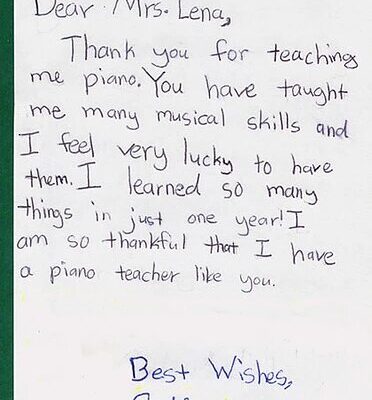 Dear Mrs. Lena,
Thank you for teaching
me piano. You have taught
me many musical skills and
I feel very lucky to have
them. I learned so many
things in just one year! I
am so thankful that I have
a piano teacher like you.
Best Wishes,